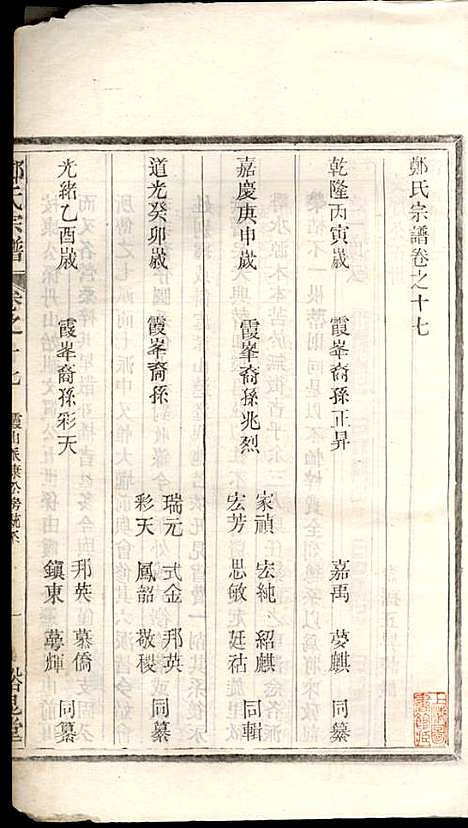 鄭氏宗譜卷之十七
乾隆丙寅歲 霞峯裔孫正昇 嘉禹 夢麒 同纂
嘉慶庚申歲 霞峯裔孫兆烈 家禎 宏純 紹麒
宏芳 思敏 廷祜 同輯
道光癸卯歲 霞峯裔孫 瑞元 式金 邦英
彩天 鳳韶 敬稷 同纂
光緒乙酉歲 霞峯裔孫彩天 邦英 慕僑
鎮東 夢輝 同纂
鄭氏宗譜 卷之十七 霞山派康公房統系 一 裕昆堂